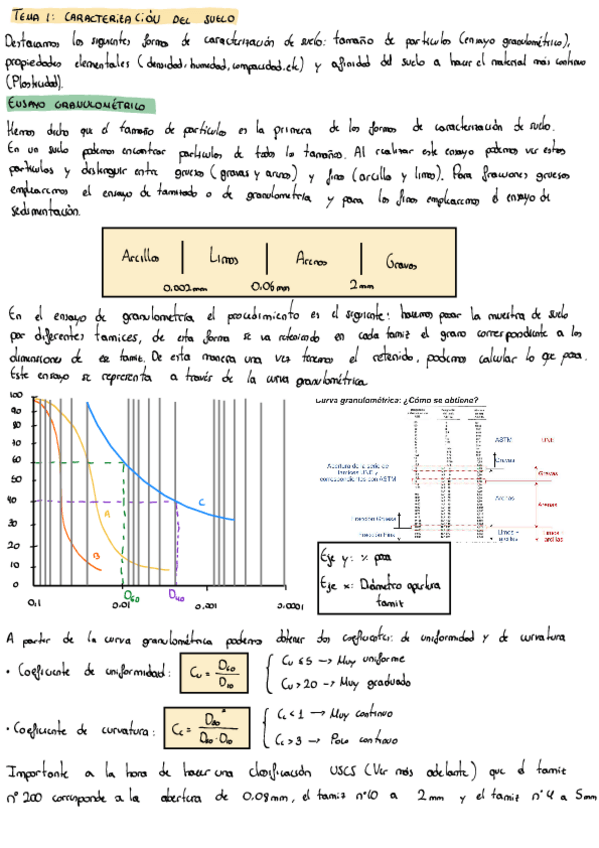 TEMA 1: CARACTERIZACIÓN DEL SUELO
Destacamos las siguientes formas de caracterización de suelo: tamaño de partículas (ensayo granulométrico),
propiedades elementales (densidad, humedad, compacidad, etc) y afinidad del suelo a hacer el material más continuo
(Plasticidad).
ENSAYO GRANULOMÉTRICO
Hemos dicho que el tamaño de partículas es la primera de las formas de caracterización de suelo.
En un suelo podemos encontrar partículas de todos los tamaños. Al realizar este ensayo podemos ver estas
partículas y distinguir entre gruesos (gravas y arenas) y finos (arcilla y limo). Para fracciones gruesas
emplearemos el ensayo de tamizado o de granulometría y para los finos emplearemos el ensayo de
sedimentación.
Arcillas | Limos | Arenas | Gravas
0.002mm 0.06mm 2mm
En el ensayo de granulometría el procedimiento es el siguiente: hacemos pasar la muestra de suelo
por diferentes tamices, de esta forma se va reteniendo en cada tamiz el grano correspondiente a las
dimensiones de ese tamiz. De esta manera una vez tenemos el retenido, podemos calcular lo que pasa.
Este ensayo se representa a través de la curva granulométrica.
Curva granulométrica: ¿Cómo se obtiene?
100
90
80
70
60
50
40
30
20
10
0
A
B
C
D60
D40
0,1 0,01 0,001 0,0001
ASTM
UNE
Gravas
Gravas
Apertura de la serie de
tamices UNE y
correspondientes con ASTM
Arenas
Arenas
Fracción Gruesa
Fracción Fina
Limos +
arcillas
Limos +
arcillas
Eje y: % pasa
Eje x: Diámetro apertura
tamiz
A partir de la curva granulométrica podemos obtener dos coeficientes: de uniformidad y de curvatura
• Coeficiente de uniformidad: Cu = D60 / D10
Cu ≤ 5 → Muy uniforme
Cu > 20 → Muy graduado
• Coeficiente de curvatura: Cc = D30² / D60 · D10
Cc < 1 → Muy continuo
Cc > 3 → Poco continuo
Importante a la hora de hacer una clasificación USCS (Ver más adelante) que el tamiz
nº 200 corresponde a la abertura de 0.08mm, el tamiz nº10 a 2mm y el tamiz nº4 a 5mm